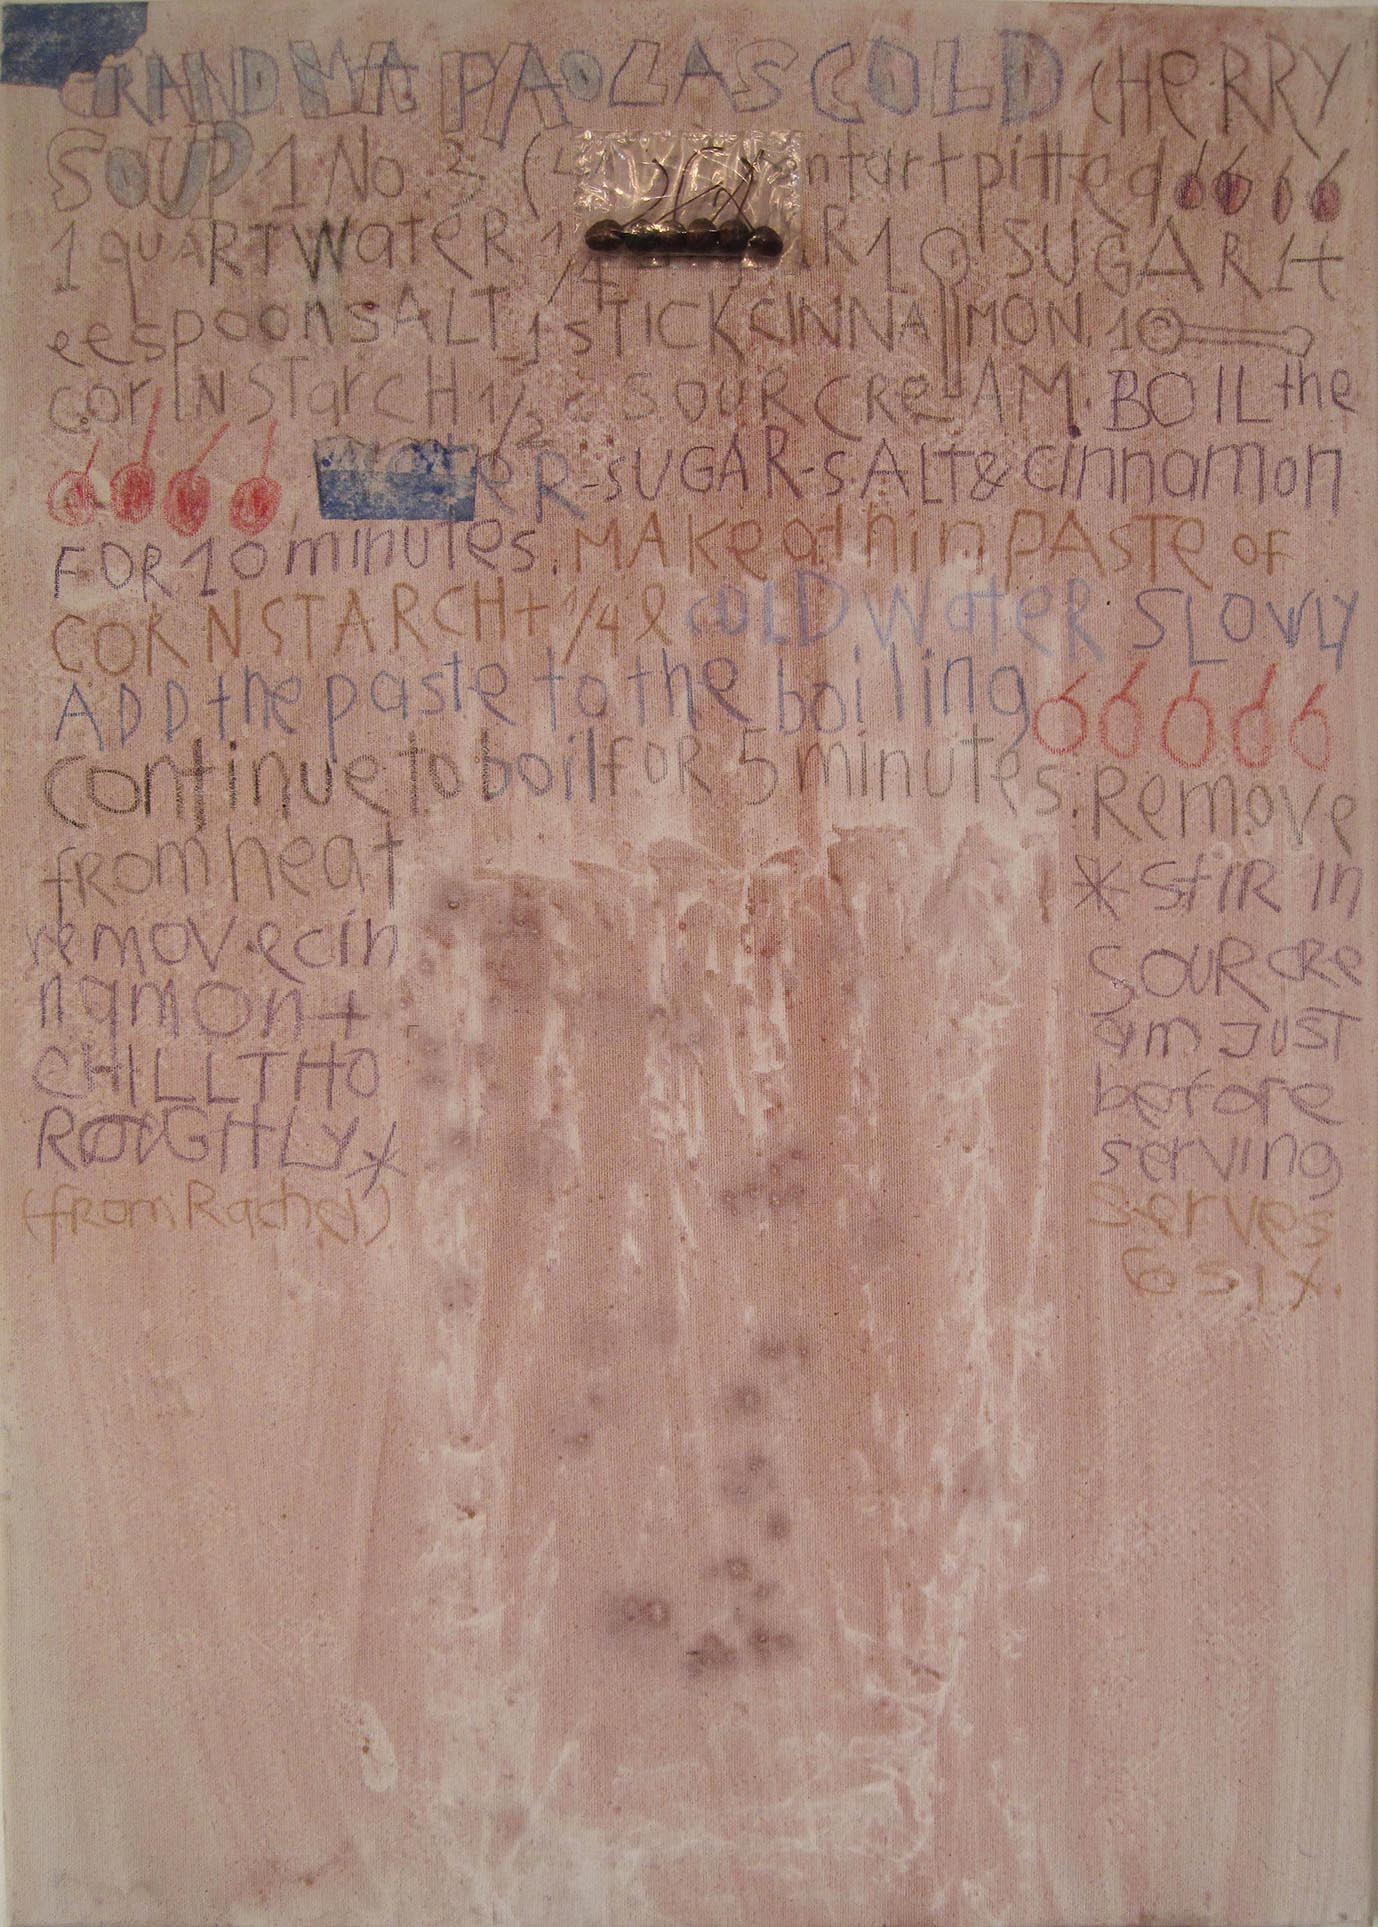 GRANDMA PAOLAS COLD CHERRY
SOUP 1 No. 3 (4 tart pitted
1 QUART WateR 1/4 R 1 SUGAR 1 t
eespoon SALT 1 STICK CINNAMON. 1
corN STarCH 1/2 c SOUR CReAM. BOIL the
WateR-SUGAR-SALT & cinnamon
FOR 10 minutes. MAke a thin PASTe OF
CORNSTARCH + 1/4 COLD WateR SLOWLY
ADD the paste to the boiling
continue to boil FOR 5 minutes. Remove
from heat
remove cin
namon +
CHILL THO
ROUGHLY *
(from Rachel)
* StIR in
SOUR cRe
am JUST
before
serving
serves
6 six.